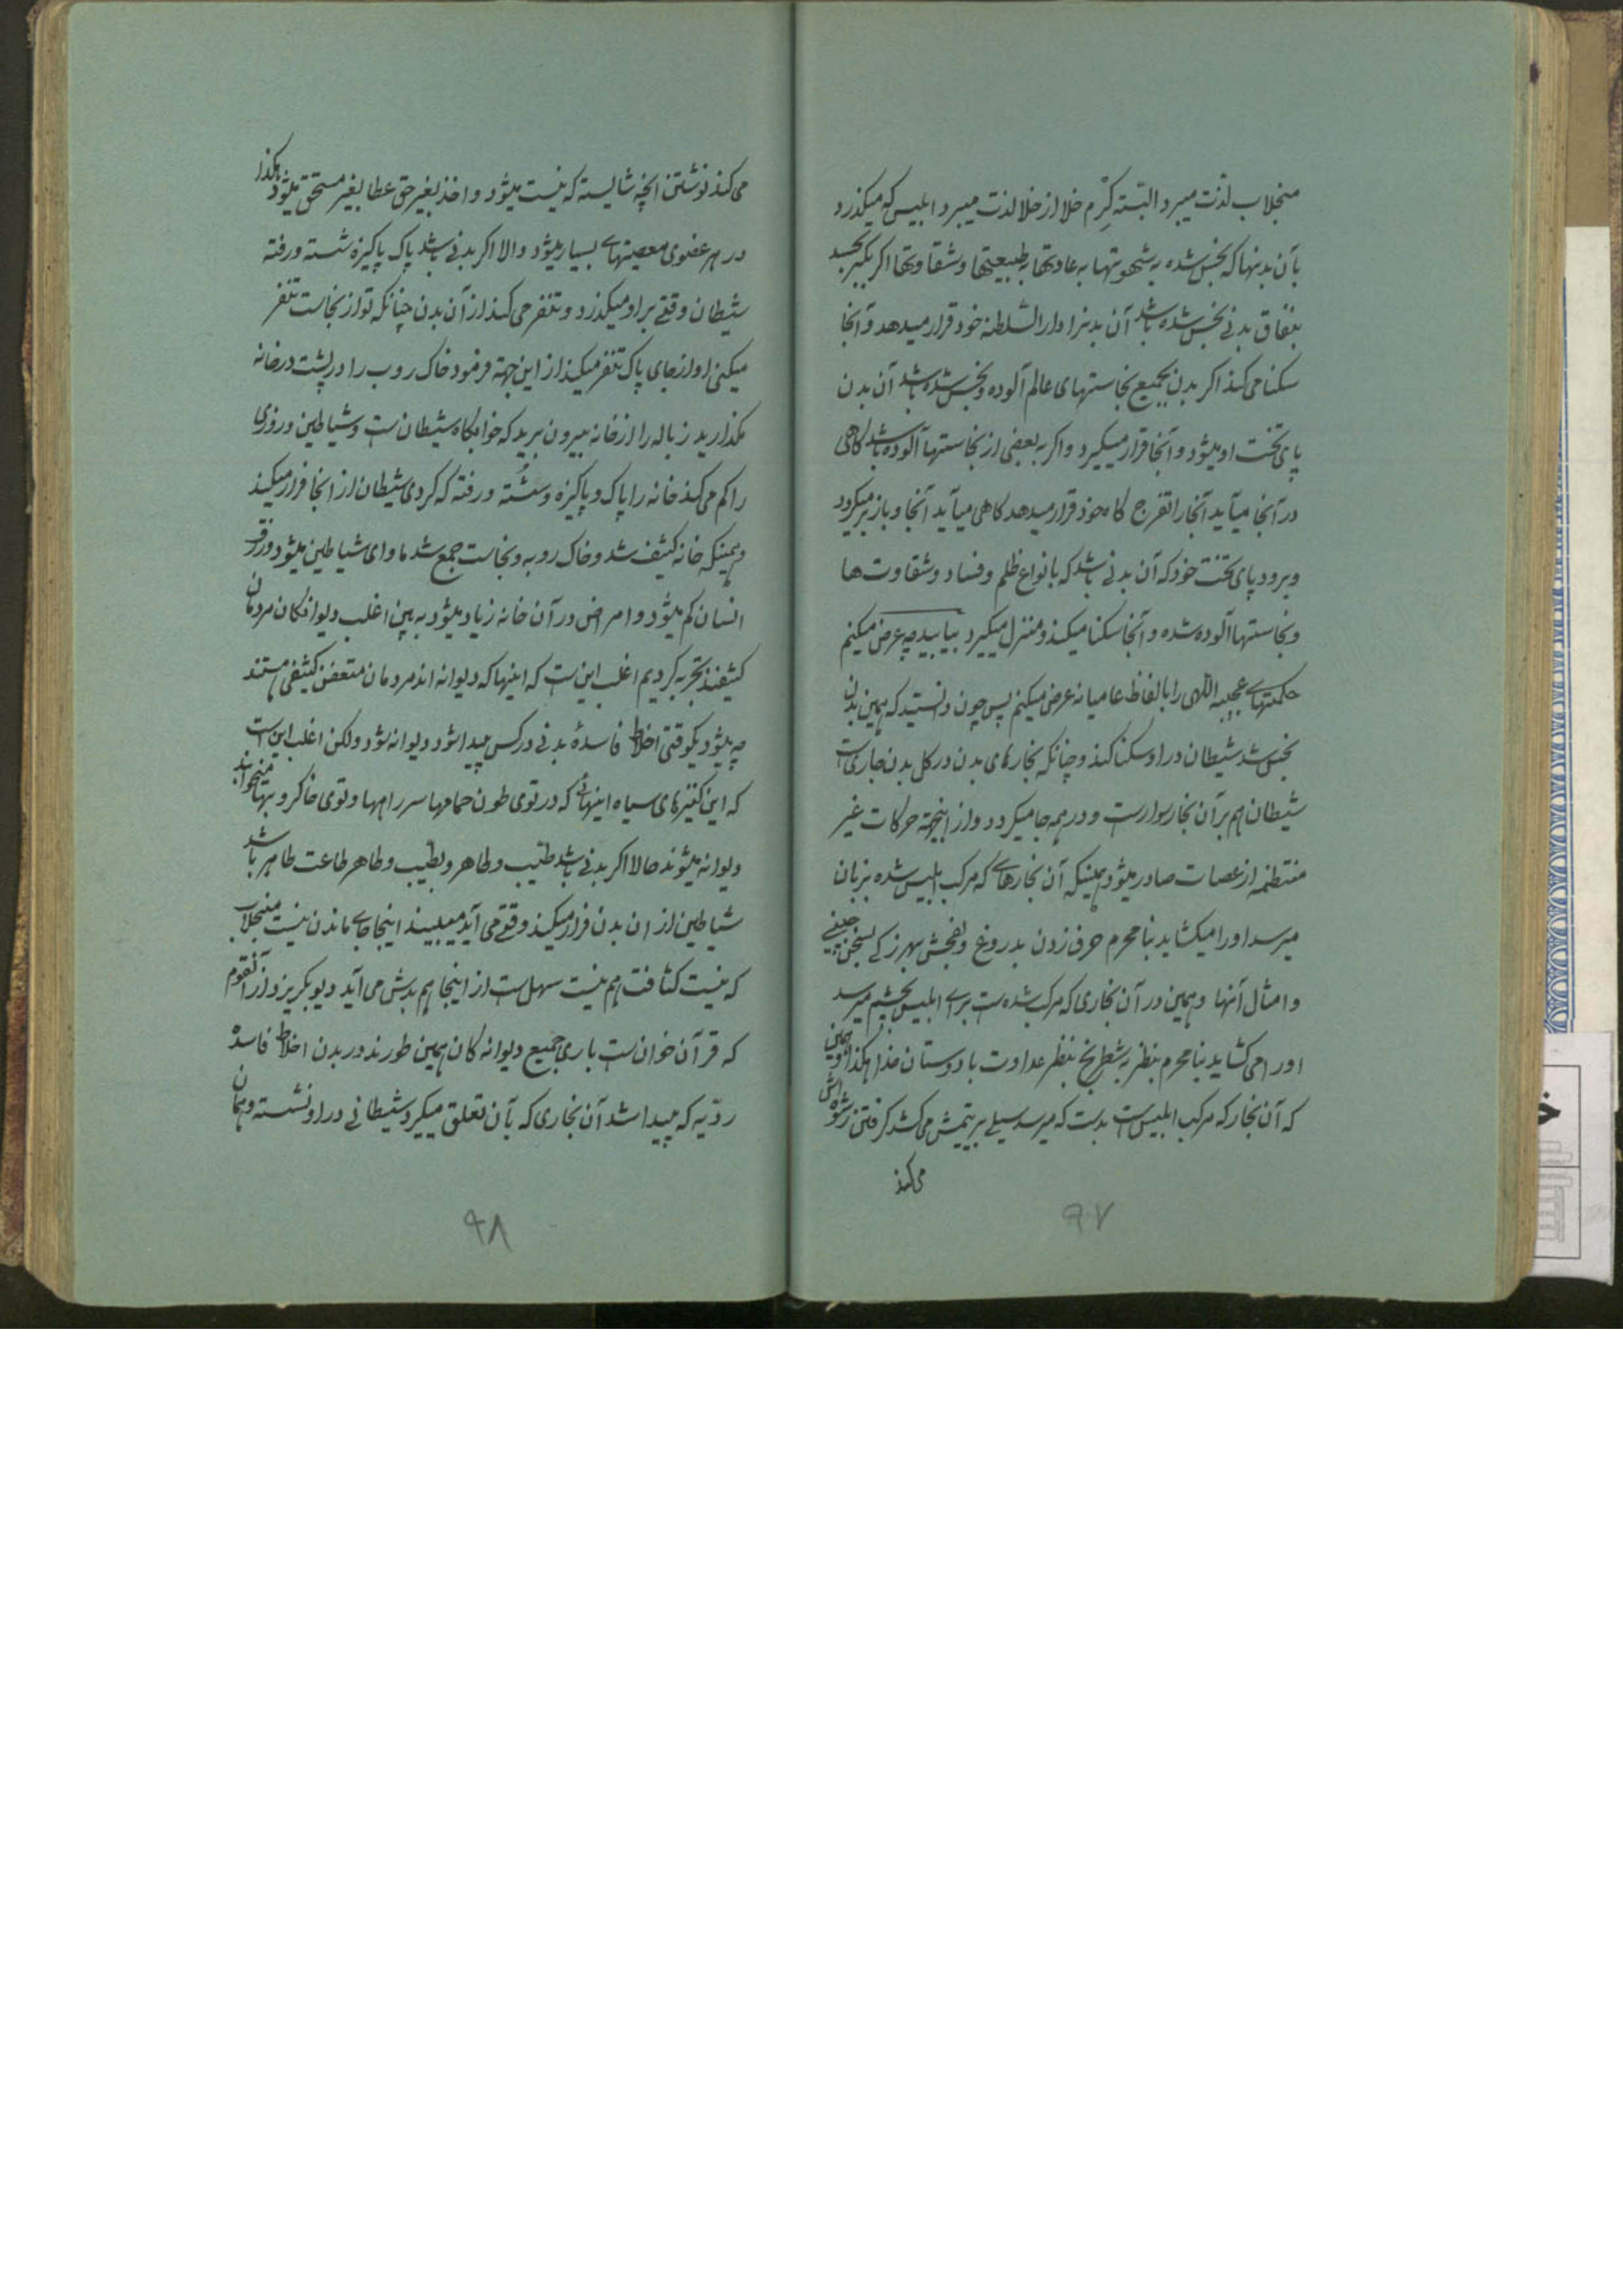 منجلاب لذت میبرد البتّه کرْم خلا از خلا لذت میبرد ابلیس که میکذرد
بآن بدنها که نجس شده به شهوتها به عادتها به طبیعتها و شقاوتها اکر
بنفاق بدنی نجس شده باشد آن بدنرا دار السّلطنه خود قرار میدهد و آنجا
سکنا می کند اکر بدن بجمیع نجاستهای عالم آلوده و نجس شده باشد آن بدن
پای تخت او میشود و آنجا قرار میکیرد و اکر به بعضی از نجاستها آلوده باشد کاهی
در آنجا میآید آنجا را تفرج کاه خود قرار میدهد کاهی میآید آنجا و باز برمیکردد
و میرود پای تخت خود که آن بدنی باشد که بانواع ظلم و فساد و شقاوت ها
و نجاستها آلوده شده و آنجا سکنا میکند و منزل میکیرد بیابید چه عرض میکنم
حکمتهای عجیبه الهی را بالفاظ عامیانه عرض میکنم پس چون دانستید که همین بدن
نجس شد شیطان در او سکنا کند و چنانکه بخارهای بدن در کل بدن جاری است
شیطان هم بر آن بخار سوار است و در همه جا میکردد و از اینجهة حرکات غیر
منتظمه از عصات صادر میشود همینکه آن بخارهای که مرکب ابلیس شده بزبان
میرسد او را میکشاید بنا محرم حرف زدن بدروغ و بفحش بهرزکی بسخن چینی
و امثال آنها و همین در آن بخاری که مرکب شده است برای ابلیس بچشم میرسد
او را می کشاید بنا محرم بنظر به شطرنج بنظر عداوت با دوستان خدا هکذا و همین
که آن بخار که مرکب ابلیس است بدست که میرسد سیلی بر یتمش می کشد کرفتن رشوه اش
می کند
۹۷
می کند نوشتن آنچه شایسته که نیست میشود و اخذ بغیر حق عطا بغیر مستحق میشود هکذا
در هر عضوی معصیتهای بسیار میشود و الا اکر بدنی باشد پاک پاکیزه شسته و رفته
شیطان وقتی بر او میکذرد و تنفر می کند از آن بدن چنانکه تو از نجاست تنفر
میکنی او از جای پاک تنفر میکند از این جهة فرمود خاک روب را در پشت در خانه
مکذارید زباله را از خانه بیرون برید که خوابکاه شیطان است و شیاطین و روزی
را کم می کند خانه را پاک و پاکیزه و شُسته و رفته که کردی شیطان از آنجا فرار میکند
و همینکه خانه کثیف شد و خاک روبه و نجاست جمع شد ماوای شیاطین میشود و رزق
انسان کم میشود و امراض در آن خانه زیاد میشود به بین اغلب دیوانکان مردمان
کثیفند تجربه کردیم اغلب این است که اینها که دیوانه اند مردمان متعفن کثیفی هستند
چه میشود یکوقتی اخلاط فاسدهٔ بدنی در کس پیدا شود دیوانه شود ولکن اغلب این است
که این کنیزهای سیاه اینهائی که در توی طون حمامها سر راهها و توی خاکروبها میخوابند
دیوانه میشوند حالا اکر بدنی باشد طیّب و طاهر و بطیب و طاهر طاعت طاهر باشد
شیاطین از ان بدن فرار میکند وقتی می آید میبیند اینجا جای ماندن نیست منجلاب
که نیست کثافت هم نیست سهل است از اینجا هم بدش می آید دیو بکریزد از آنقوم
که قرآن خوان است باری جمیع دیوانه کان همین طورند در بدن اخلاط فاسده
ردّیه که پیدا شد آن بخاری که بآن تعلق میکیرد شیطانی در او نشسته و همان
۹۸